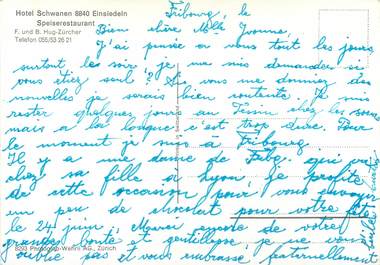 Hotel Schwanen 8840 Einsiedeln
Speiserestaurant
F. und B. Hug-Zürcher
Telefon 055/53 26 21
Fribourg, le
Bien chère Mlle Yvonne,
J'ai pensée a vous tout les jours
surtout les soir je me suis demander si
vous étiez seul? Si vous me donniez des
nouvelles je serais bien contente. Je suis
rester quelques jours au Tessin chez les
mais a la longue c'est trop dure. Pour
le moment je suis a Fribourg
Il y a une dame de Fribg. qui va
chez sa fille à Lyon je profite
de cette occasion pour vous envoyer
un peu de chocolat pour votre fête
le 24 juin, Merci encore de votre
grande bonté et gentillesse je ne vous
oublie pas et vous embrasse fraternellement
8293 AG., Zürich